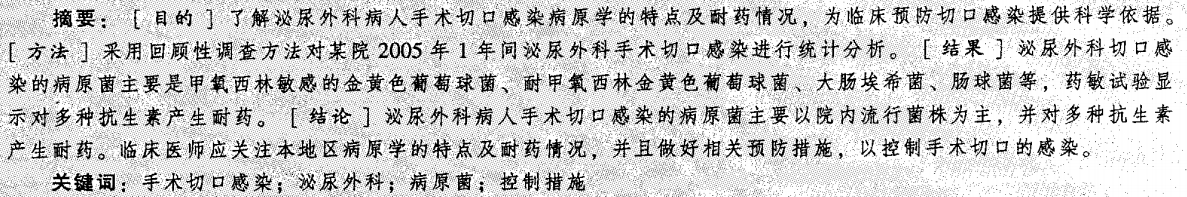 摘要：［目的］了解泌尿外科病人手术切口感染病原学的特点及耐药情况，为临床预防切口感染提供科学依据。
［方法］采用回顾性调查方法对某院2005年1年间泌尿外科手术切口感染进行统计分析。［结果］泌尿外科切口感
染的病原菌主要是甲氧西林敏感的金黄色葡萄球菌、耐甲氧西林金黄色葡萄球菌、大肠埃希菌、肠球菌等，药敏试验显
示对多种抗生素产生耐药。［结论］泌尿外科病人手术切口感染的病原菌主要以院内流行菌株为主，并对多种抗生素
产生耐药。临床医师应关注本地区病原学的特点及耐药情况，并且做好相关预防措施，以控制手术切口的感染。
关键词：手术切口感染；泌尿外科；病原菌；控制措施